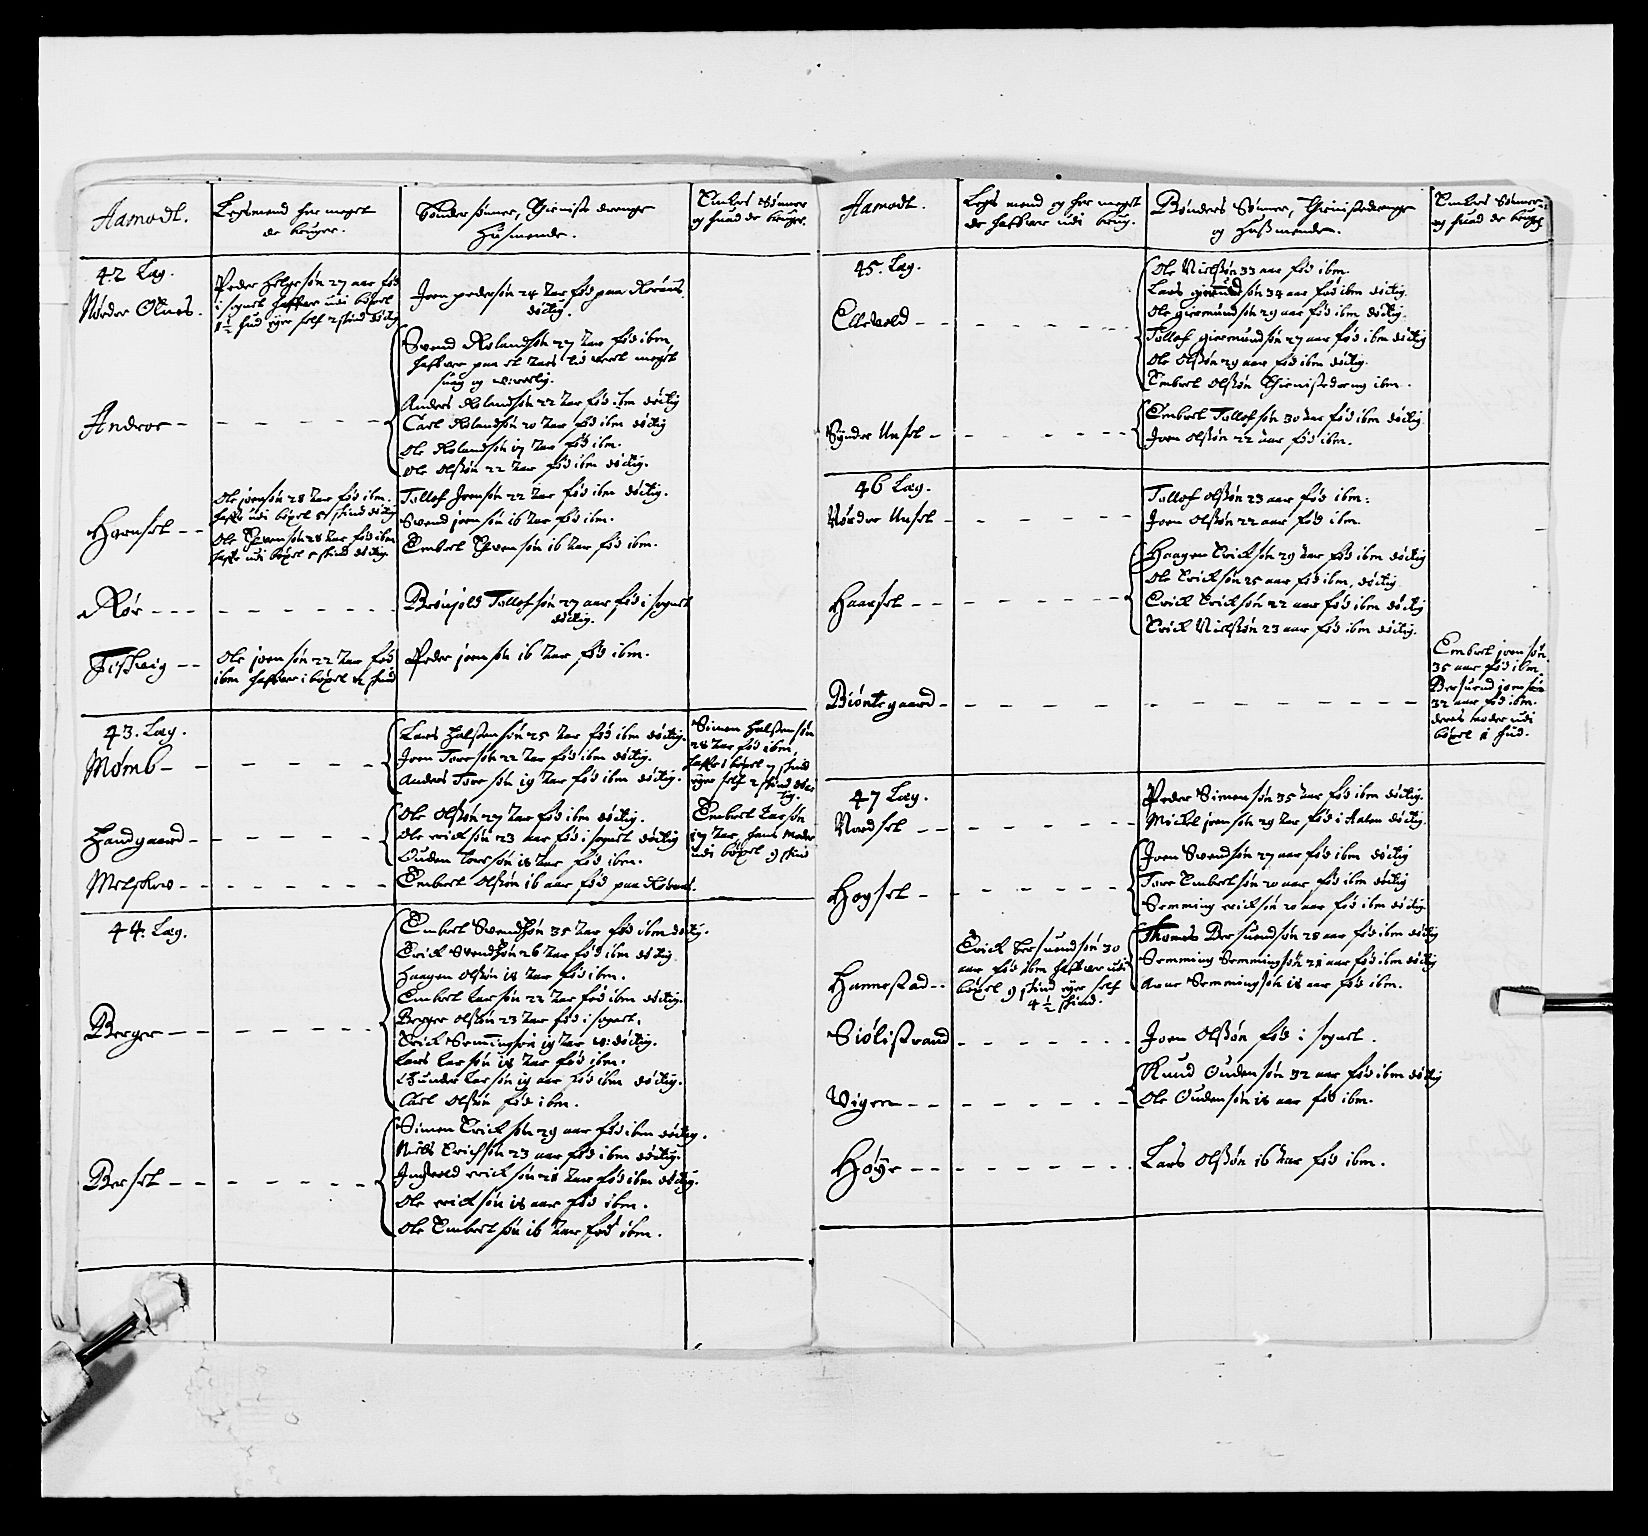 Aamodt.
Legsmend hor meget
de bruger.
Bønder sønner, Thieniste drenge
Husmende.
Embers Sønner
og huad de bruger.
42 Læg.
Nørder Olnes.
Peder Helgesøn 27 aar fød
i sognet haffver udi böxel
1½ hud eyer self 2 skind döctig
Joen pedersøn 24 aar fød paa Rørous
döctig.
Androe
Svend Rolandsøn 27 aar fød ibm,
haffver paa et aars tid verit meget
suag og
Anders Rolandsøn 22 aar fød ibm döctig
Carl Rolandsøn 20 aar fød ibm döctig
Ole Rolandsøn 17 aar fød ibm.
Ole Olssøn 22 aar fød ibm döctig.
Hornset
Ole joensøn 28 aar fød ibm.
udi böxel skind döctig
Ole søn 28 aar fød ibm
udi böxel skind döctig.
Tollof Joensøn 22 aar fød ibm döctig.
Svend joensøn 16 aar fød ibm.
Embret søn 16 aar fød ibm.
Rør
Tollofsøn 27 aar fød i sognet
döctig.
Fiskvig
Ole joensøn 22 aar fød
ibm haffver i böxel skind
Peder joensøn 16 aar fød ibm.
43. Læg.
Mømb
Lars Halstensøn 25 aar fød ibm döctig.
Joen Toresøn 22 aar fød ibm döctig.
Anders Toresøn 19 aar fød ibm döctig.
Simen Halstensøn
28 aar fød ibm,
i böxel 7 skind
eyer self 2 skind döc
tig.
Haudgaard
Ole Olssøn 27 aar fød ibm döctig.
Ole ericksøn 23 aar fød i sognet döctig
Ouden larssøn 18 aar fød ibm.
Embret larsøn
17 aar, hans Moder
udi böxel 9 skind
Melskou
Embret Olssøn 16 aar fød paa Rørous.
44. Læg.
Berger
Embret Svendsøn 35 aar fød ibm döctig.
Erick Svendsøn 26 aar fød ibm döctig
Haagen Olssøn 18 aar fød ibm.
Embret larsøn 22 aar fød ibm döctig.
Berger olssøn 23 aar fød i sognet.
Erick Semmingsøn 19 aar u:döctig.
Lars larsøn 18 aar fød ibm.
Gunder larsøn 19 aar fød ibm döctig.
Carl Olssøn fød ibm.
Berset
Simen Ericksøn 29 aar fød ibm döctig.
Niels Ericksøn 23 aar fød ibm döctig.
Ingvold ericksøn 21 aar fød ibm döctig.
Ole ericksøn 18 aar fød ibm.
Ole Embretsøn 16 aar fød ibm.
Aamodt.
Legs mend og hor meget
de haffver udi brug.
Bønders Sønner, Thienistedrenge
og Hussmende.
Embers Sønner
og huad de bruger
45. Læg.
Ellevold
Ole Nielssøn 33 aar fød ibm.
Lars giermundsøn 34 aar fød ibm döctig
Ole giermundsøn 29 aar fød ibm döctig.
Tollof giermundsøn 27 aar fød ibm döctig
Ole Olssøn 29 aar fød ibm döctig.
Embret Olssøn Thienistedreng ibm.
Synder Unset
Embret Tollofsøn 30 aar fød ibm döctig.
Joen Olssøn 22 aar fød ibm.
46 Læg.
Nørder Unset
Tollof Olssøn 23 aar fød ibm.
Joen Olssøn 22 aar fød ibm
Haarset
Haagen Ericksøn 29 aar fød ibm döctig
Ole Ericksøn 25 aar fød ibm, döctig
Erick Ericksøn 22 aar fød ibm döctig
Erick Nielssøn 23 aar fød ibm döctig.
Biöntegaard
Embret joensøn
35 aar fød ibm
Bersuend joensøn
32 aar fød ibm.
deres moder udi
böxel 1 hud.
47 Læg.
Nordset
Peder Simensøn 35 aar fød ibm döctig.
Mickel joensøn 29 aar fød i dalen döctig.
Hogset
Joen Svendsøn 27 aar fød ibm döctig
Tore Embretsøn 20 aar fød ibm döctig
Semming ericksøn 20 aar fød ibm döctig
Hannestad
Erick bersuendsøn 30
aar fød ibm haffver udi
böxel 9 skind eyer self
4½ skind.
Thomes Bersuendsøn 28 aar fød ibm döctig
Semming Semmingsøn 21 aar fød ibm döctig
Arne Semmingsøn 18 aar fød ibm.
Siölistrand
Joen Olssøn fød i sognet.
Vigen
Knud Oudensøn 32 aar fød ibm döctig
Ole Oudensøn 18 aar fød ibm.
Høye
Lars Olssøn 16 aar fød ibm.